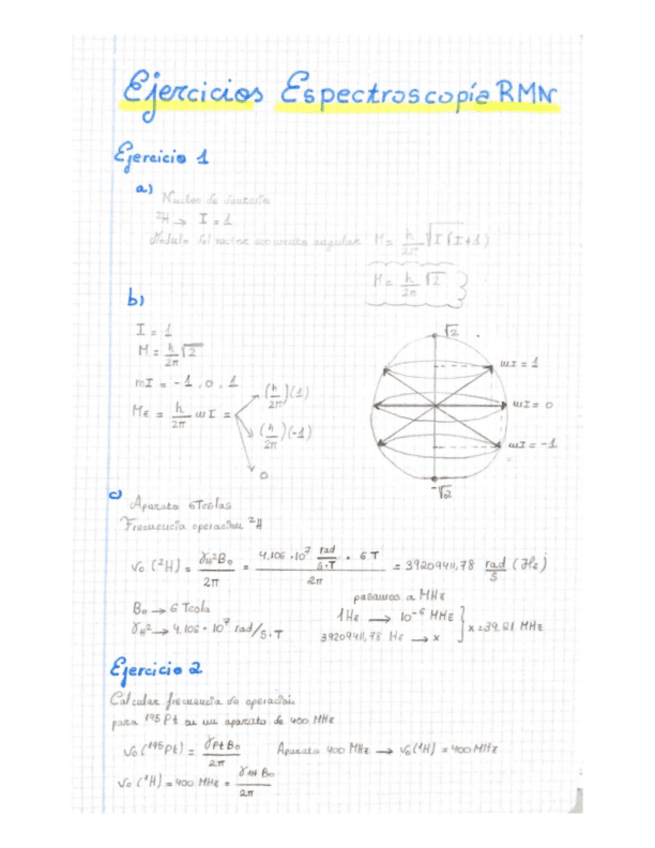 Ejercicios Espectroscopía RMN
Ejercicio 1
a)
Nucleo de deuterio
²H → I = 1
Módulo del vector momento angular M = h/2π √I(I+1)
M = h/2π √2
b)
I = 1
M = h/2π √2
mI = -1, 0, 1
Mz = h/2π mI =
(h/2π)(1)
(h/2π)(-1)
0
√2
mI = 1
mI = 0
mI = -1
-√2
c)
Aparato 6Teslas
Frecuencia operacion ²H
ν₀ (²H) = γH²B₀/2π = 4,106 · 10⁷ rad/s·T · 6 T/2π = 39209411,78 rad/s (Hz)
B₀ → 6 Tesla
γH² → 4,106 · 10⁷ rad/s·T
pasamos a MHz
1Hz → 10⁻⁶ MHz
39209411,78 Hz → x
x = 39.21 MHz
Ejercicio 2
Calcular frecuencia de operación
para ¹⁹⁵Pt en un aparato de 400 MHz
ν₀ (¹⁹⁵Pt) = γPt B₀/2π Aparato 400 MHz → ν₀(¹H) = 400 MHz
ν₀ (¹H) = 400 MHz = γ¹H B₀/2π